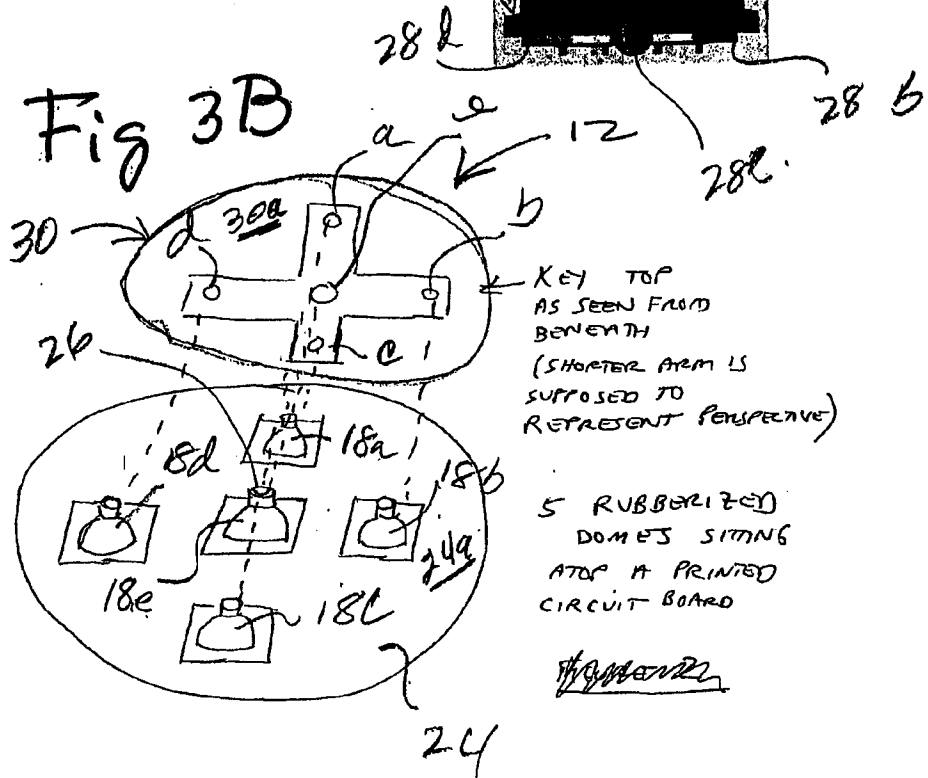 28 d
28 b
28e.
Fig 3B
a
e
12
30
d
30a
b
c
KEY TOP
AS SEEN FROM
BENEATH
(SHORTER ARM IS
SUPPOSED TO
REPRESENT PERSPECTIVE)
26
18a
18d
18b
24a
18e
18C
5 RUBBERIZED
DOMES SITTING
ATOP A PRINTED
CIRCUIT BOARD
24